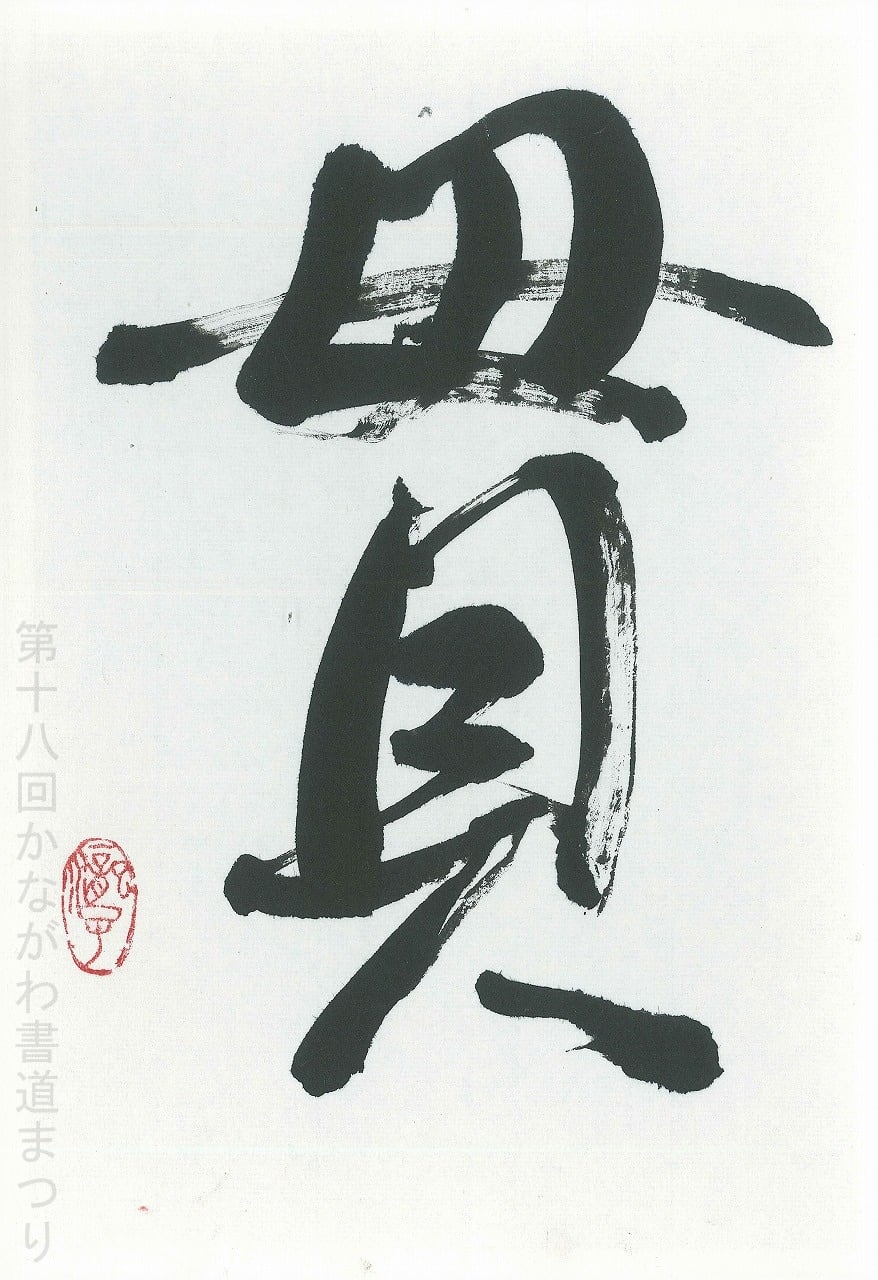 貫
第十八回かながわ書道まつり